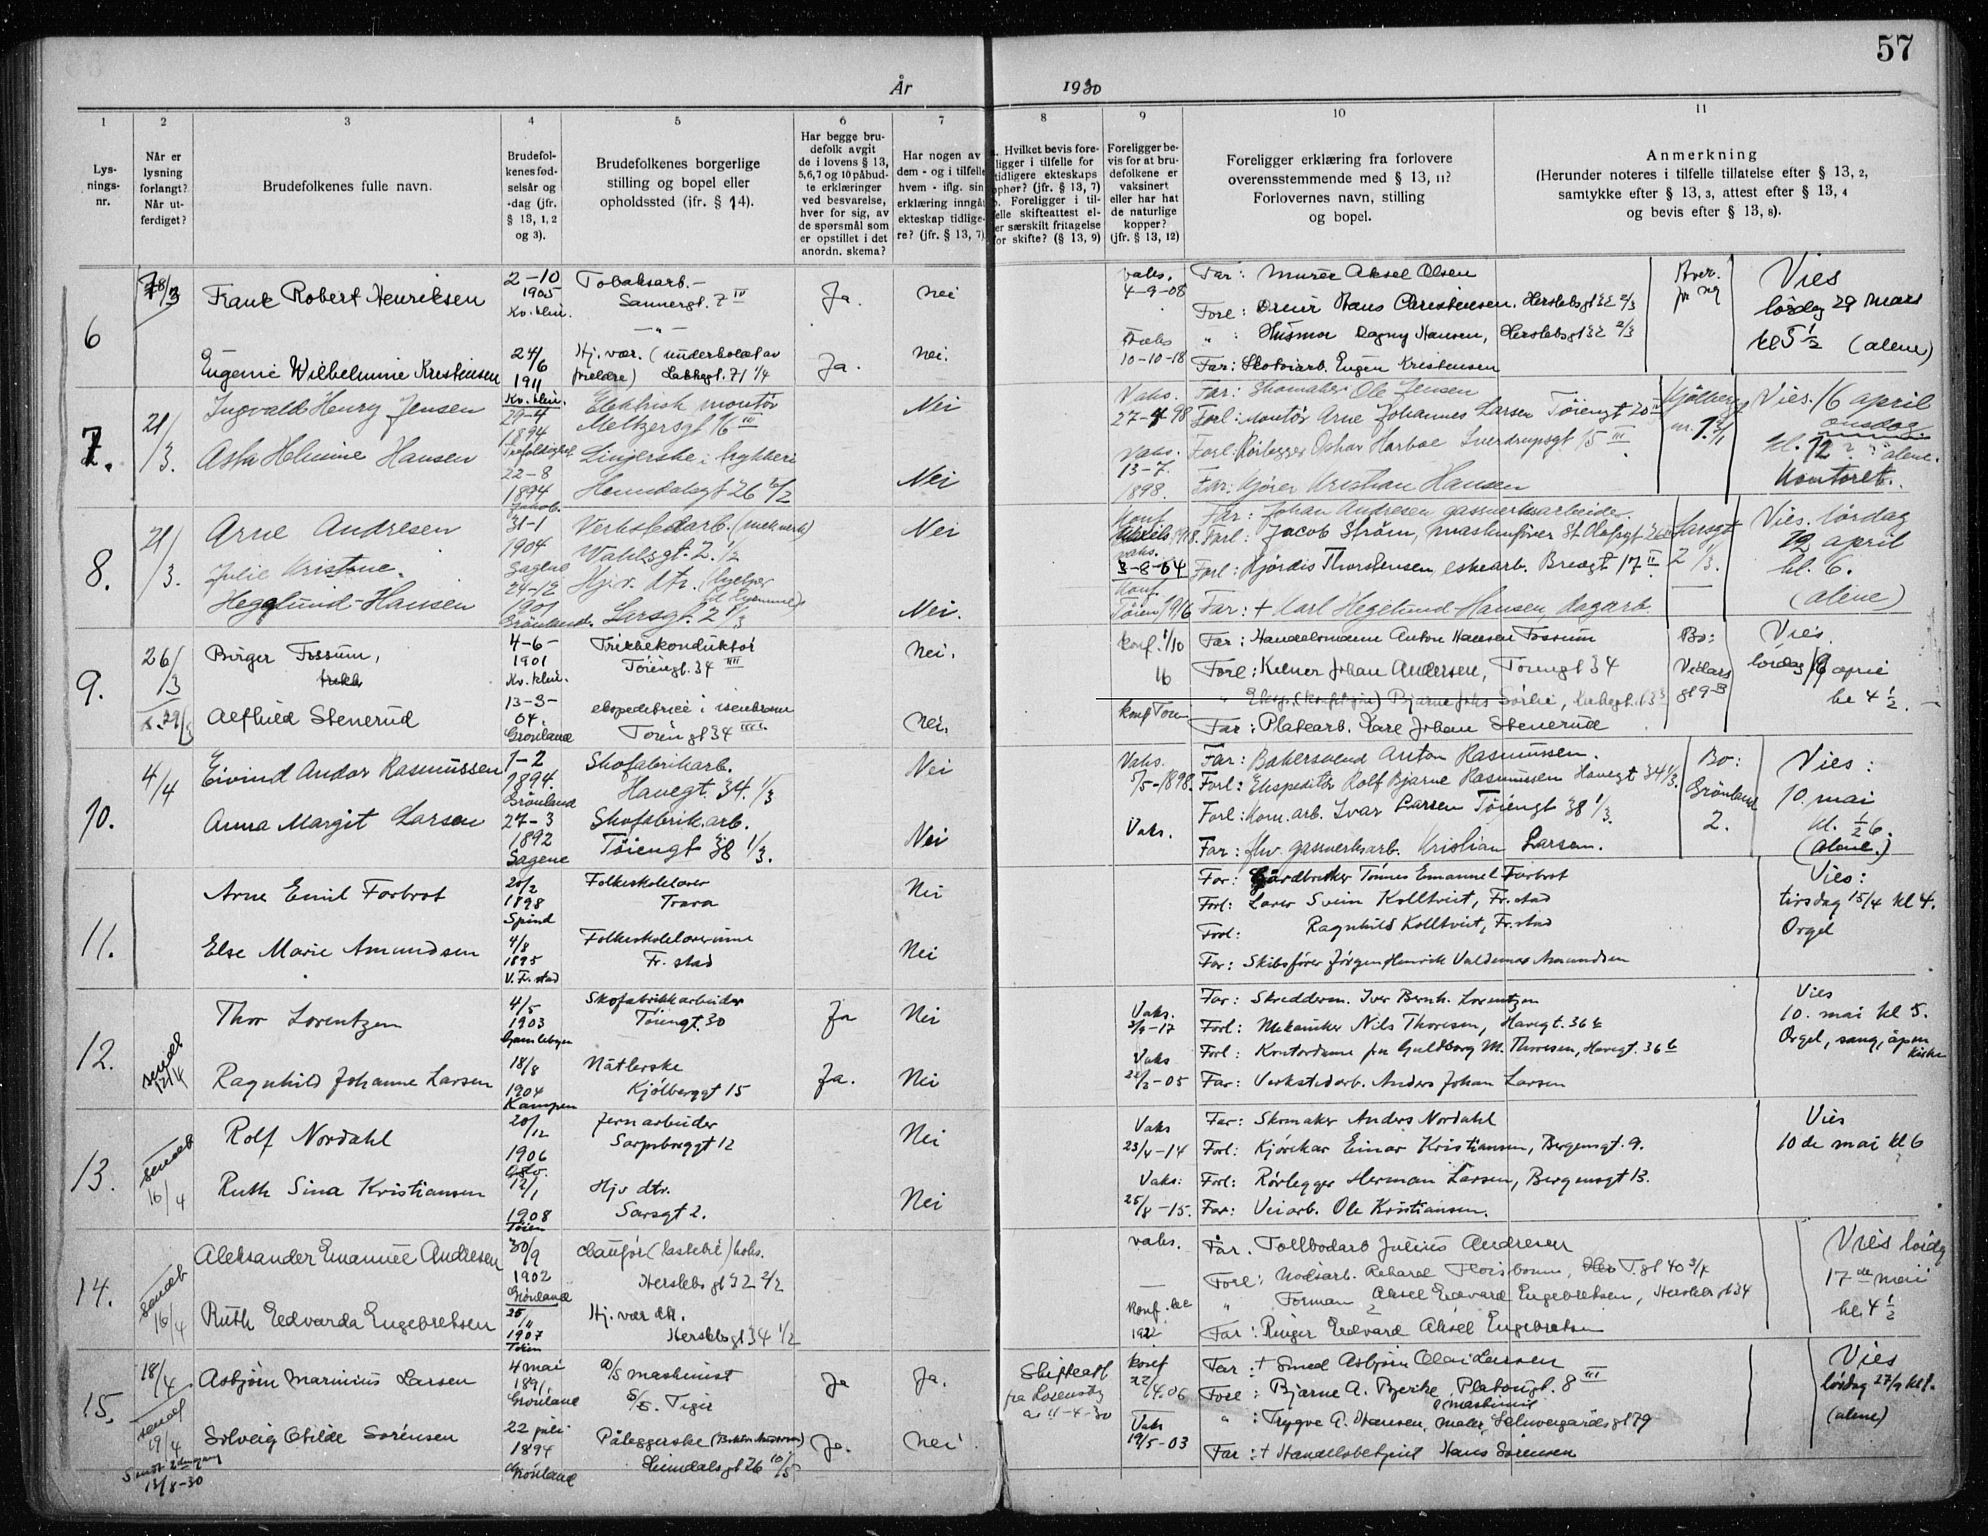 57
År 1930
1 2 3 4 5 6 7 8 9 10 11
Lys-
nings-
nr.
Når er
lysning
forlangt?
Når ut-
ferdiget?
Brudefolkenes fulle navn.
Brudefol-
kenes fød-
selsår og
-dag (jfr.
§ 13, 1, 2
og 3).
Brudefolkenes borgerlige
stilling og bopel eller
opholdssted (ifr. § 14).
Har begge bru-
defolk avgit
de i lovens § 13,
5,6,7 og 10 påbud-
te erklæringer
ved besvarelse,
hver for sig, av
de spørsmål som
er opstillet i det
anordn. skema?
Har nogen av
dem - og i tilfelle
hvem - iflg. sin
erklæring inngåt
ekteskap tidlige-
re? (jfr. § 13, 7)
Hvilket bevis fore-
ligger i tilfelle for
tidligere ekteskaps
ophør? (jfr. § 13, 7)
Foreligger i til-
felle skifteattest el-
er særskilt fritagelse
for skifte? (§ 13, 9)
Foreligger be-
vis for at bru-
defolkene er
vaksinert
eller har hat
de naturlige
kopper?
(jfr. § 13, 12)
Foreligger erklæring fra forlovere
overensstemmende med § 13, 11?
Forlovernes navn, stilling
og bopel.
Anmerkning
(Herunder noteres i tilfelle tillatelse efter § 13, 2,
samtykke efter § 13, 3, attest efter § 13, 4
og bevis efter § 13, 8).
6
Frank Robert Henriksen
2-10
1905
Tobaksarb.
Sannergt. 7 IV
Ja.
Nei
Vaks.
4-9-08
Far: Murer Aksel Olsen
Forl: Dreier Hans Christensen, Herslebsgt 32 2/3
" Husmor Dagny Hansen, Herslebsgt 32 2/3
Vies
lørdag 29 mars
kl 5 1/2 (alene)
Eugenie Wilhelmine Kristensen
24/6
1911
Hj. vær. (underholdt av
foreldre) Lakkegt. 71 1/4
Ja.
Nei.
10-10-18
Far: Skotøiarb. Eugen Kristensen
7.
21/3.
Ingvald Henry Jensen
29-4
1894
Elektrisk montør
Meltzersgt 16 III
Nei
Vaks.
27-4 98
Far: Skomaker Ole Jensen
Forl: Montør Arne Johannes Larsen Tøiengt 20
Vies. 16 april
onsdag
kl. 12 alene.
Kontoret.
Asta Helmine Hansen
22-8
1894
Jakob.
Heimdalsgt 26
Nei
Vaks.
13-7.
1898.
Forl: Rørlegger Oskar Harboe Sverdrupsgt 15 III
Far: Kjører Kristian Hansen
8.
21/3.
Arne Andresen
31-1
1904
Sagene
Verkstedarb. (mek verks)
Wahlsgt. 2. 1/2
Nei
3-8-04
Far: Johan Andresen gassverksarbeider.
Forl: Jacob Strøm, maskinfører St Olafsgt
Forl: Hjørdis Thorstensen, eskearb. Breigt 17 II
Vies. lørdag
12 april
kl. 6.
(alene)
Julie Kristine
Hegglund-Hansen
24-12
1901
Grønland.
Hjv. dtr.
Sarsgt. 2 1/3
Nei.
Konf.
Tøien 1916
Far: + Karl Hegelund-Hansen, dagarb.
9.
26/3
29/3
Birger Fossum,
4-6-
1901
Trikkekonduktør
Tøiengt. 34 IIII
Nei.
Konf. 1/10
16
Far: Handelsmann Anton Hansen Fossum
Forl: Kelner Johan Andersen, Tøiengt 34
Bo:
Vies.
lørdag 19 april
kl 4 1/2.
Alfhild Stenerud
13-3-
04.
Grønland
ekspeditrice i isenkram
Tøiengt 34
Nei.
konf Tøien
Far: Platearb. Karl Johan Stenerud
10.
4/4
Eivind Andor Rasmussen
1-2
1894.
Grønland
Skofabrikarb.
Havegt. 34. 1/3
Nei
Vaks.
5/5-1898.
Far: Bakersvend Anton Rasmussen.
Forl: Ekspeditør Rolf Bjarne Rasmussen Havegt 34 1/3.
Forl: Kom. arb. Ivar Larsen Tøiengt 38 1/3.
Bo:
Grønland
2.
Vies:
10. mai
kl. 1/2 6.
(alene.)
Anna Margit Larsen
27-3
1892
Sagene
Skofabrik.arb.
Tøiengt 38 1/3.
Nei
Vaks.
Far: fhv. gassverksarb. Kristian Larsen.
11.
Arne Emil Forbrot
20/2
1898
Spind
Folkeskolelærer
Trara
Nei
Far: Gårdbruker Tønnes Emanuel Forbrot
Forl: Lærer Svein Kolltveit, Fr.stad
Forl: Ragnhild Kolltveit, Fr.stad
Vies:
tirsdag 15/4 kl 4.
Orgel
Else Marie Amundsen
4/8
1895
V. Fr. stad
Folkeskolelærerinne
Fr. stad
Nei
Far: Skibsfører Jørgen Henrik Valdemar Amundsen
12.
sendt
12/4
Thor Lorentzen
4/5
1903
Gamlebyen
Skofabrikkarbeider
Tøiengt. 30
Ja
Nei
Vaks.
3/9-17
Far: Skredderm. Iver Bernh. Lorentzen
Forl: Mekaniker Nils Thoresen, Havegt. 36 b
Forl: Kontordame fru Guldborg M. Thoresen, Havegt. 36 b
Vies
10. mai kl 5.
Orgel, sang, åpen
kirke
Ragnhild Johanne Larsen
18/8
1904
Kampen
Nåtlerske
Kjølberggt 15
Ja.
Nei
Vaks
22/3-05
Far: Verkstedarb. Anders Johan Larsen
13.
sendt
16/4
Rolf Nordahl
20/12
1906
Jernarbeider
Sarpsborggt 12
Nei
Vaks
23/4-14
Far: Skomaker Anders Nordahl
Forl: Kjørekar Einar Kristiansen, Bergensgt. 9.
Forl: Rørlegger Herman Larsen, Bergensgt 13.
Vies
10de mai kl 6
Ruth Sina Kristiansen
12/1
1908
Tøien
Hjv dtr.
Sarsgt 2.
Nei
Vaks:
25/8-15.
Far: Veiarb. Ole Kristiansen.
14.
sendt
16/4
Aleksander Emanuel Andresen
30/9
1902
Grønland
Chaufør (lastebil)
Herslebs gt 32 2/2
vaks.
Far. Tollbodarb Julius Andresen
Forl: Nødsarb. Rikard T.gt 40 3/4
" Forman Aksel Edvard Engebretsen, Herslebsgt 34
Vies lørdag
17de mai
kl 4 1/2
Ruth Edvarda Engebretsen
25/11
1907
Tøien
Hj. vær. dtr.
Herslebsgt 34 1/2
Konf.
1922
Far: Ringer Edvard Aksel Engebretsen
15.
18/4
sendt
19/4
Sendt 2den gang
13/8-30
Asbjørn Marinius Larsen
4 mai
1891,
Grønland
maskinist
S/S. Tiger
Ja
Ja.
Skifteatt
a: 11-4-30
konf
22/4.06
Far: + Smed Asbjørn Olai Larsen
Forl: Bjarne A. Bjerke, Platougt. 8 III
maskinist
" : Trygve A. Hansen, maler, Schweigaards gt 79
Vies
lørdag 27/9 kl
(alene)
Solveig Otilde Sørensen
22 juli
1894
Grønland
Påleggerske
Heimdalsgt 26 10/5
Ja.
Nei
Vaks
19/5-03
Far: + Handelsbetjent Hans Sørensen